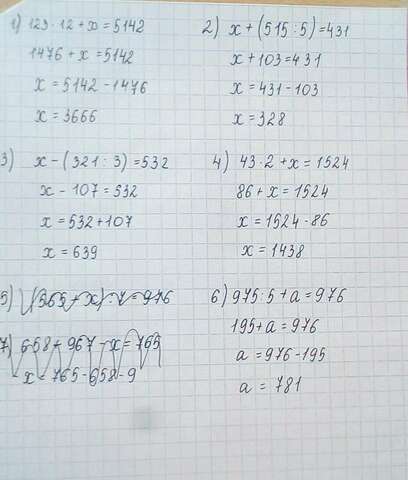 1) 123 · 12 + x = 5142
1476 + x = 5142
x = 5142 - 1476
x = 3666
2) x + (515 : 5) = 431
x + 103 = 431
x = 431 - 103
x = 328
3) x - (321 : 3) = 532
x - 107 = 532
x = 532 + 107
x = 639
4) 43 · 2 + x = 1524
86 + x = 1524
x = 1524 - 86
x = 1438
5) (365 + x) · 7 = 976
6) 975 : 5 + a = 976
195 + a = 976
a = 976 - 195
a = 781
7) 658 + 967 - x = 765
x = 765 - 658 - 9